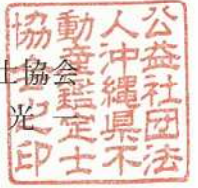 士協会
光一
公益社団法
人沖縄県不
動産鑑定士
協会之印